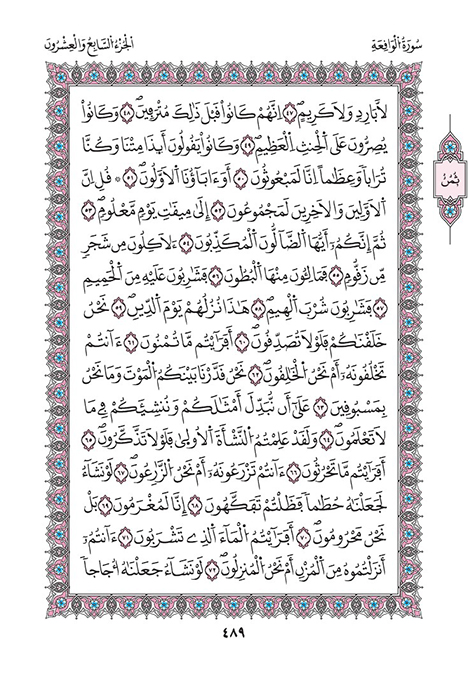 سُورَةُ الْوَاقِعَةِ
الجُزْءُ السَّابِعُ وَالْعِشْرُونَ
لَا بَارِدٍ وَلَا كَرِيمٍ ٤٧ إِنَّهُمْ كَانُوا قَبْلَ ذَٰلِكَ مُتْرَفِينَ ٤٨ وَكَانُوا
يُصِرُّونَ عَلَى الْحِنثِ الْعَظِيمِ ٤٩ وَكَانُوا يَقُولُونَ أَيِذَا مِتْنَا وَكُنَّا
تُرَابًا وَعِظَٰمًا اِنَّا لَمَبْعُوثُونَ ٥٠ أَوَ ءَابَآؤُنَا الْأَوَّلُونَ ٥١ قُلِ اِنَّ
الْأَوَّلِينَ وَالْأَخِرِينَ لَمَجْمُوعُونَ ٥٢ إِلَىٰ مِيقَٰتِ يَوْمٍ مَّعْلُومٍ ٥٣
ثُمَّ إِنَّكُمْ أَيُّهَا الضَّآلُّونَ الْمُكَذِّبُونَ ٥٤ لَأَكِلُونَ مِن شَجَرٍ
مِّن زَقُّومٍ ٥٥ فَمَالِـُٔونَ مِنْهَا الْبُطُونَ ٥٦ فَشَٰرِبُونَ عَلَيْهِ مِنَ الْحَمِيمِ
٥٧ فَشَٰرِبُونَ شُرْبَ الْهِيمِ ٥٨ هَٰذَا نُزُلُهُمْ يَوْمَ الدِّينِ ٥٩ نَحْنُ
خَلَقْنَٰكُمْ فَلَوْلَا تُصَدِّقُونَ ٦٠ أَفَرَٰيْتُم مَّا تُمْنُونَ ٦١ ءَآنتُمْ
تَخْلُقُونَهُۥٓ أَمْ نَحْنُ الْخَٰلِقُونَ ٦٢ نَحْنُ قَدَّرْنَا بَيْنَكُمُ الْمَوْتَ وَمَا نَحْنُ
بِمَسْبُوقِينَ ٦٣ عَلَىٰٓ أَن نُّبَدِّلَ أَمْثَٰلَكُمْ وَنُنشِئَكُمْ فِي مَا
لَا تَعْلَمُونَ ٦٤ وَلَقَدْ عَلِمْتُمُ النَّشْأَةَ الْأُولَىٰ فَلَوْلَا تَذَّكَّرُونَ ٦٥
أَفَرَٰيْتُم مَّا تَحْرُثُونَ ٦٦ ءَآنتُمْ تَزْرَعُونَهُۥٓ أَمْ نَحْنُ الزَّٰرِعُونَ ٦٧ لَوْ نَشَآءُ
لَجَعَلْنَٰهُ حُطَٰمًا فَظَلْتُمْ تَفَكَّهُونَ ٦٨ إِنَّا لَمُغْرَمُونَ ٦٩ بَلْ
نَحْنُ مَحْرُومُونَ ٧٠ أَفَرَٰيْتُمُ الْمَآءَ الَّذِي تَشْرَبُونَ ٧١ ءَآنتُمُۥٓ
أَنزَلْتُمُوهُ مِنَ الْمُزْنِ أَمْ نَحْنُ الْمُنزِلُونَ ٧٢ لَوْ نَشَآءُ جَعَلْنَٰهُ أُجَاجًا
ثُمُن
٤٨٩